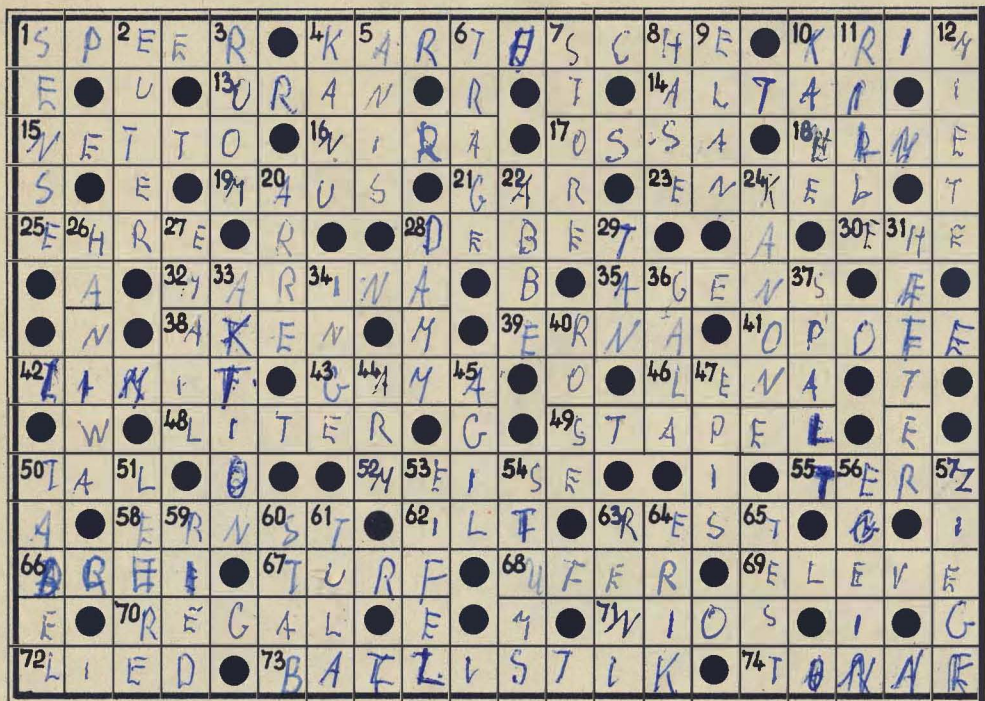 1S P 2E E 3R 4K 5A R 6T U 7S C 8H 9E 10K 11R I 12M
E U 13O R A N R T 14A L T A I I
15N E T T O 16W I R A 17O S S A 18H R N E
S E 19M 20A U S 21G 22A R 23E N 24K E L T
25E 26H R 27E R 28D E B E 29T A 30E 31H E
A 32M 33A R 34I N A B 35A 36G E N 37S E
N 38A K E N M 39E 40R N A 41O P O E E
42L I M I T 43G 44A M 45A O 46L 47E N A T
W 48L I T E R G 49S T A P E L E
50T A 51L O 52M 53E I 54S E I 55T 56E R 57Z
A 58E 59R N 60S 61T 62I L T 63R 64E S 65T G I
66B Q E I 67T U R F 68U F E R 69E L E V E
E 70R E G A L E M 71W I O S I G
72L I E D 73B A L L I S T I K 74T O N N E